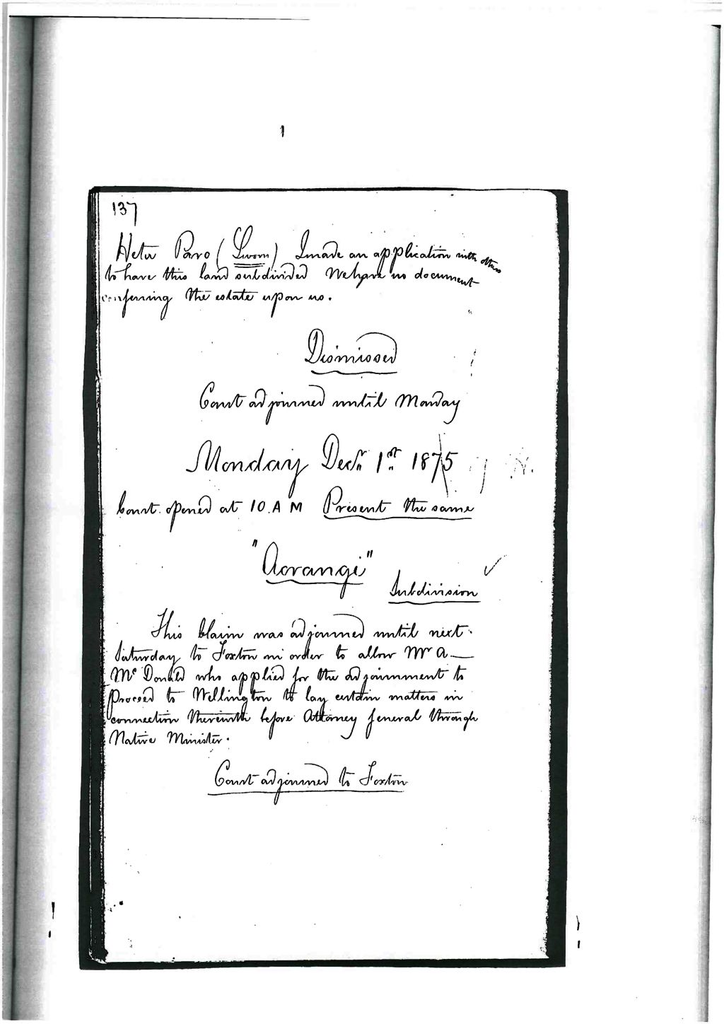 1
137
Hetu Paro (Sworn) I made an application with others
to have this land subdivided We have no document
conferring the estate upon us.
Dismissed
Court adjourned until Monday
Monday Decr 1st 1875
Court opened at 10. A M Present the same
"Aorangi"
Subdivision
This Claim was adjourned until next
Saturday to Foxton in order to allow Mr A
McDonald who applied for the adjournment to
Proceed to Wellington to lay certain matters in
connection therewith before Attorney General through
Native Minister.
Court adjourned to Foxton